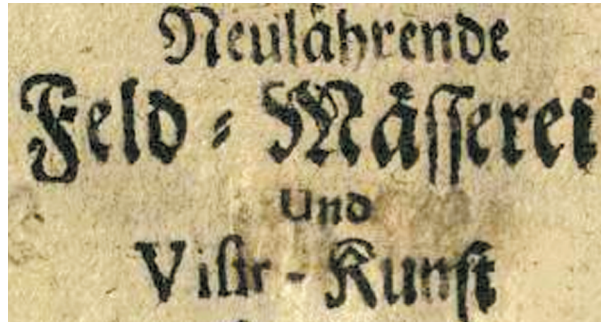 Neulåhrende
Feld-Måsserei
Und
Visir-Kunst